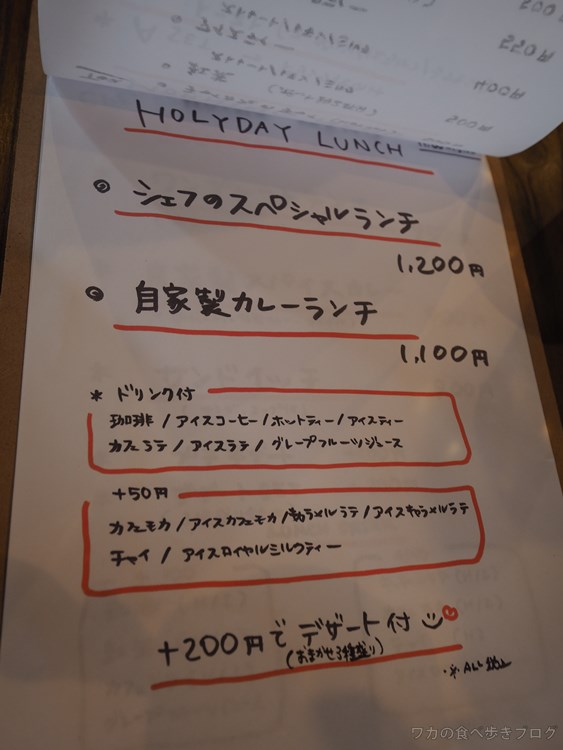 HOLYDAY LUNCH
◎ シェフのスペシャルランチ
1,200円
◎ 自家製カレーランチ
1,100円
* ドリンク付
珈琲 / アイスコーヒー / ホットティー / アイスティー
カフェラテ / アイスラテ / グレープフルーツジュース
+50円
カフェモカ / アイスカフェモカ / キャラメルラテ / アイスキャラメルラテ
チャイ / アイスロイヤルミルクティー
+200円で デザート付
(おまかせ3種盛り)
※ ALL 税込
ワカの食べ歩きブログ